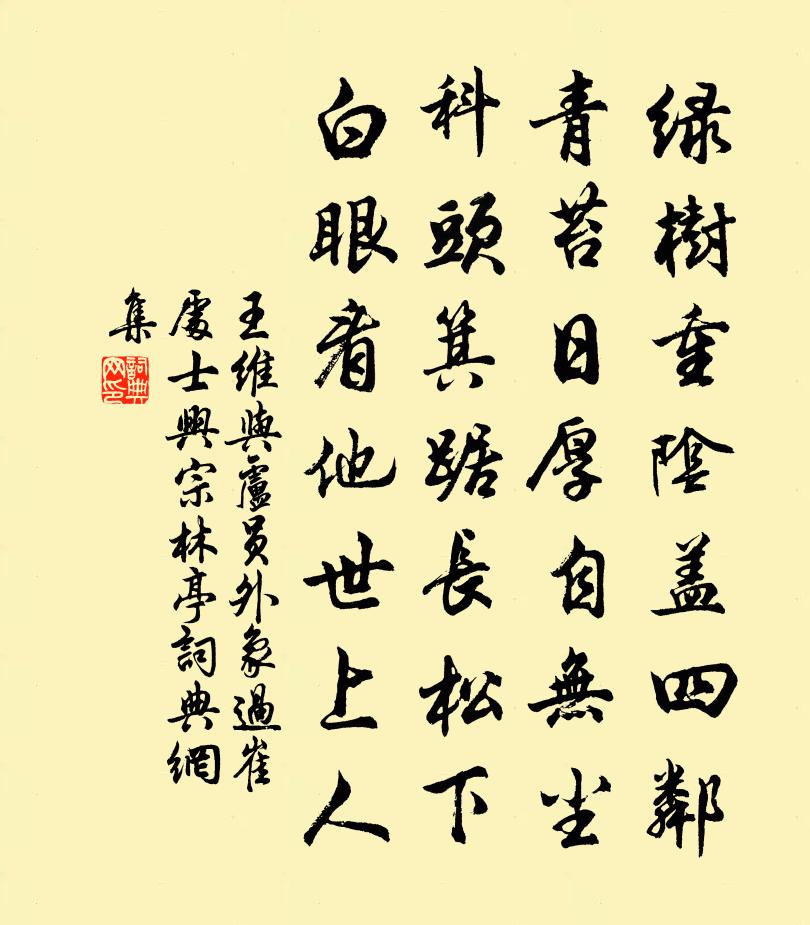 綠樹重陰盖四鄰
青苔日厚自無尘
科頭箕踞長松下
白眼看他世上人
王維與盧員外象過崔
處士興宗林亭詞典網
集
詞典网印